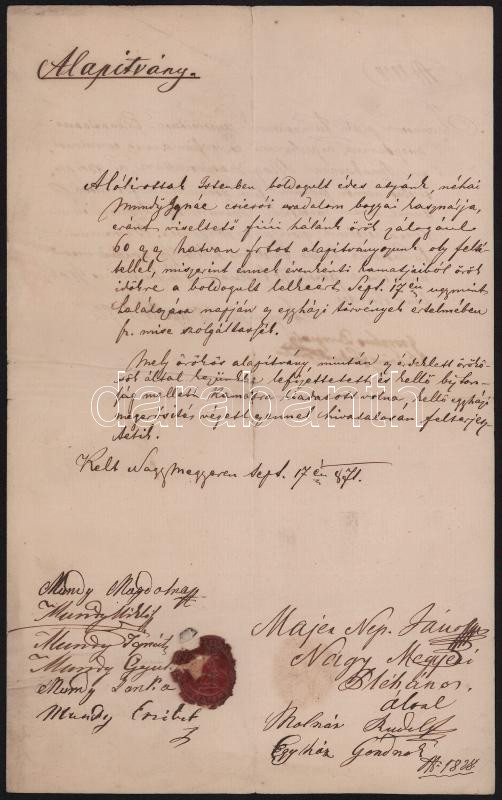 Alapitvány.
Alólirottak Istenben boldogult édes atyánk, néhai
Mundy Ignác csicsói uradalom bogyai kasznárja,
eránt viseltető fiúi hálánk örök zálogául
60 azaz hatvan frtot alapitványozunk oly felté-
tellel, miszerint ennek évenkénti kamatjaiból örök
időkre a boldogult lelkeért Sept. 17én ugymint
halálozása napján az egyházi törvények értelmében
sz. mise szolgáltassék.
Mely örökös alapitvány, mintán az érdeklett örökö-
sök által kezünkhez lefizettetett és kellő bizton-
ság mellett kamatra kiadatott volna, kellő egyházi
megerősités végett ezennel hivatalosan felterjesz-
tetik.
Kelt Nagymegyeren Sept. 17én 871.
Mundy Magdolna
Mundy Miklós
Mundy Ignátz
Mundy Gyula
Mundy Ilonka
Mundy Erzsébet
Majer Nep. János
Nagy Megyeri
Plébános.
által
Molnár Rudolf
Egyház Gondnok
darabanth